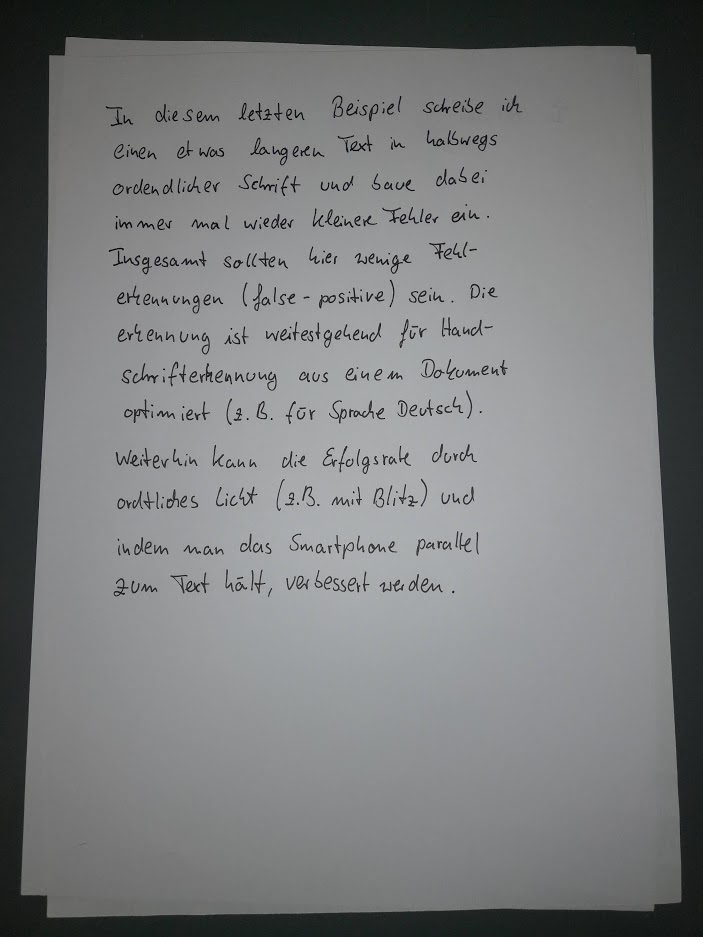 In diesem letzten Beispiel schreibe ich
einen etwas langeren Text in halbwegs
ordendlicher Schrift und baue dabei
immer mal wieder kleinere Fehler ein.
Insgesamt sollten hier wenige Fehl-
erkennungen (false-positive) sein. Die
erkennung ist weitestgehend für Hand-
schrifterkennung aus einem Dokument
optimiert (z.B. für Sprache Deutsch).
Weiterhin kann die Erfolgsrate durch
ordtliches Licht (z.B. mit Blitz) und
indem man das Smartphone parallel
zum Text hält, verbessert werden.